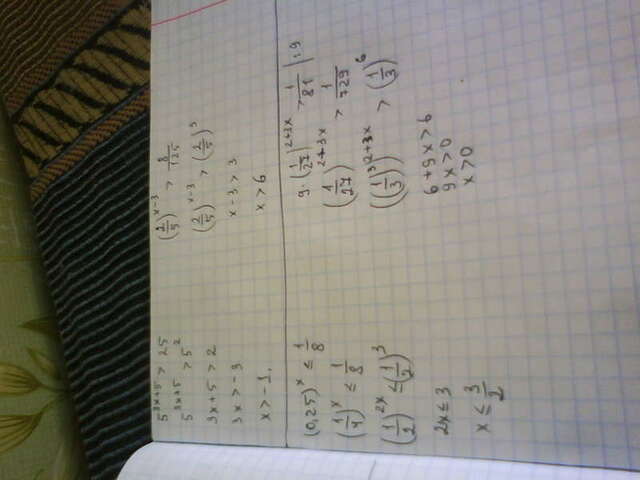 5^{3x+5} > 25
5^{3x+5} > 5^2
3x+5 > 2
3x > -3
x > -1.
(2/5)^{x-3} > 8/125
(2/5)^{x-3} > (2/5)^3
x-3 > 3
x > 6
(0,25)^x ≤ 1/8
(1/4)^x ≤ 1/8
(1/2)^{2x} ≤ (1/2)^3
2x ≤ 3
x ≤ 3/2
9·(1/27)^{2+3x} > 1/81 |:9
(1/27)^{2+3x} > 1/729
((1/3)^3)^{2+3x} > (1/3)^6
6+9x > 6
9x > 0
x > 0